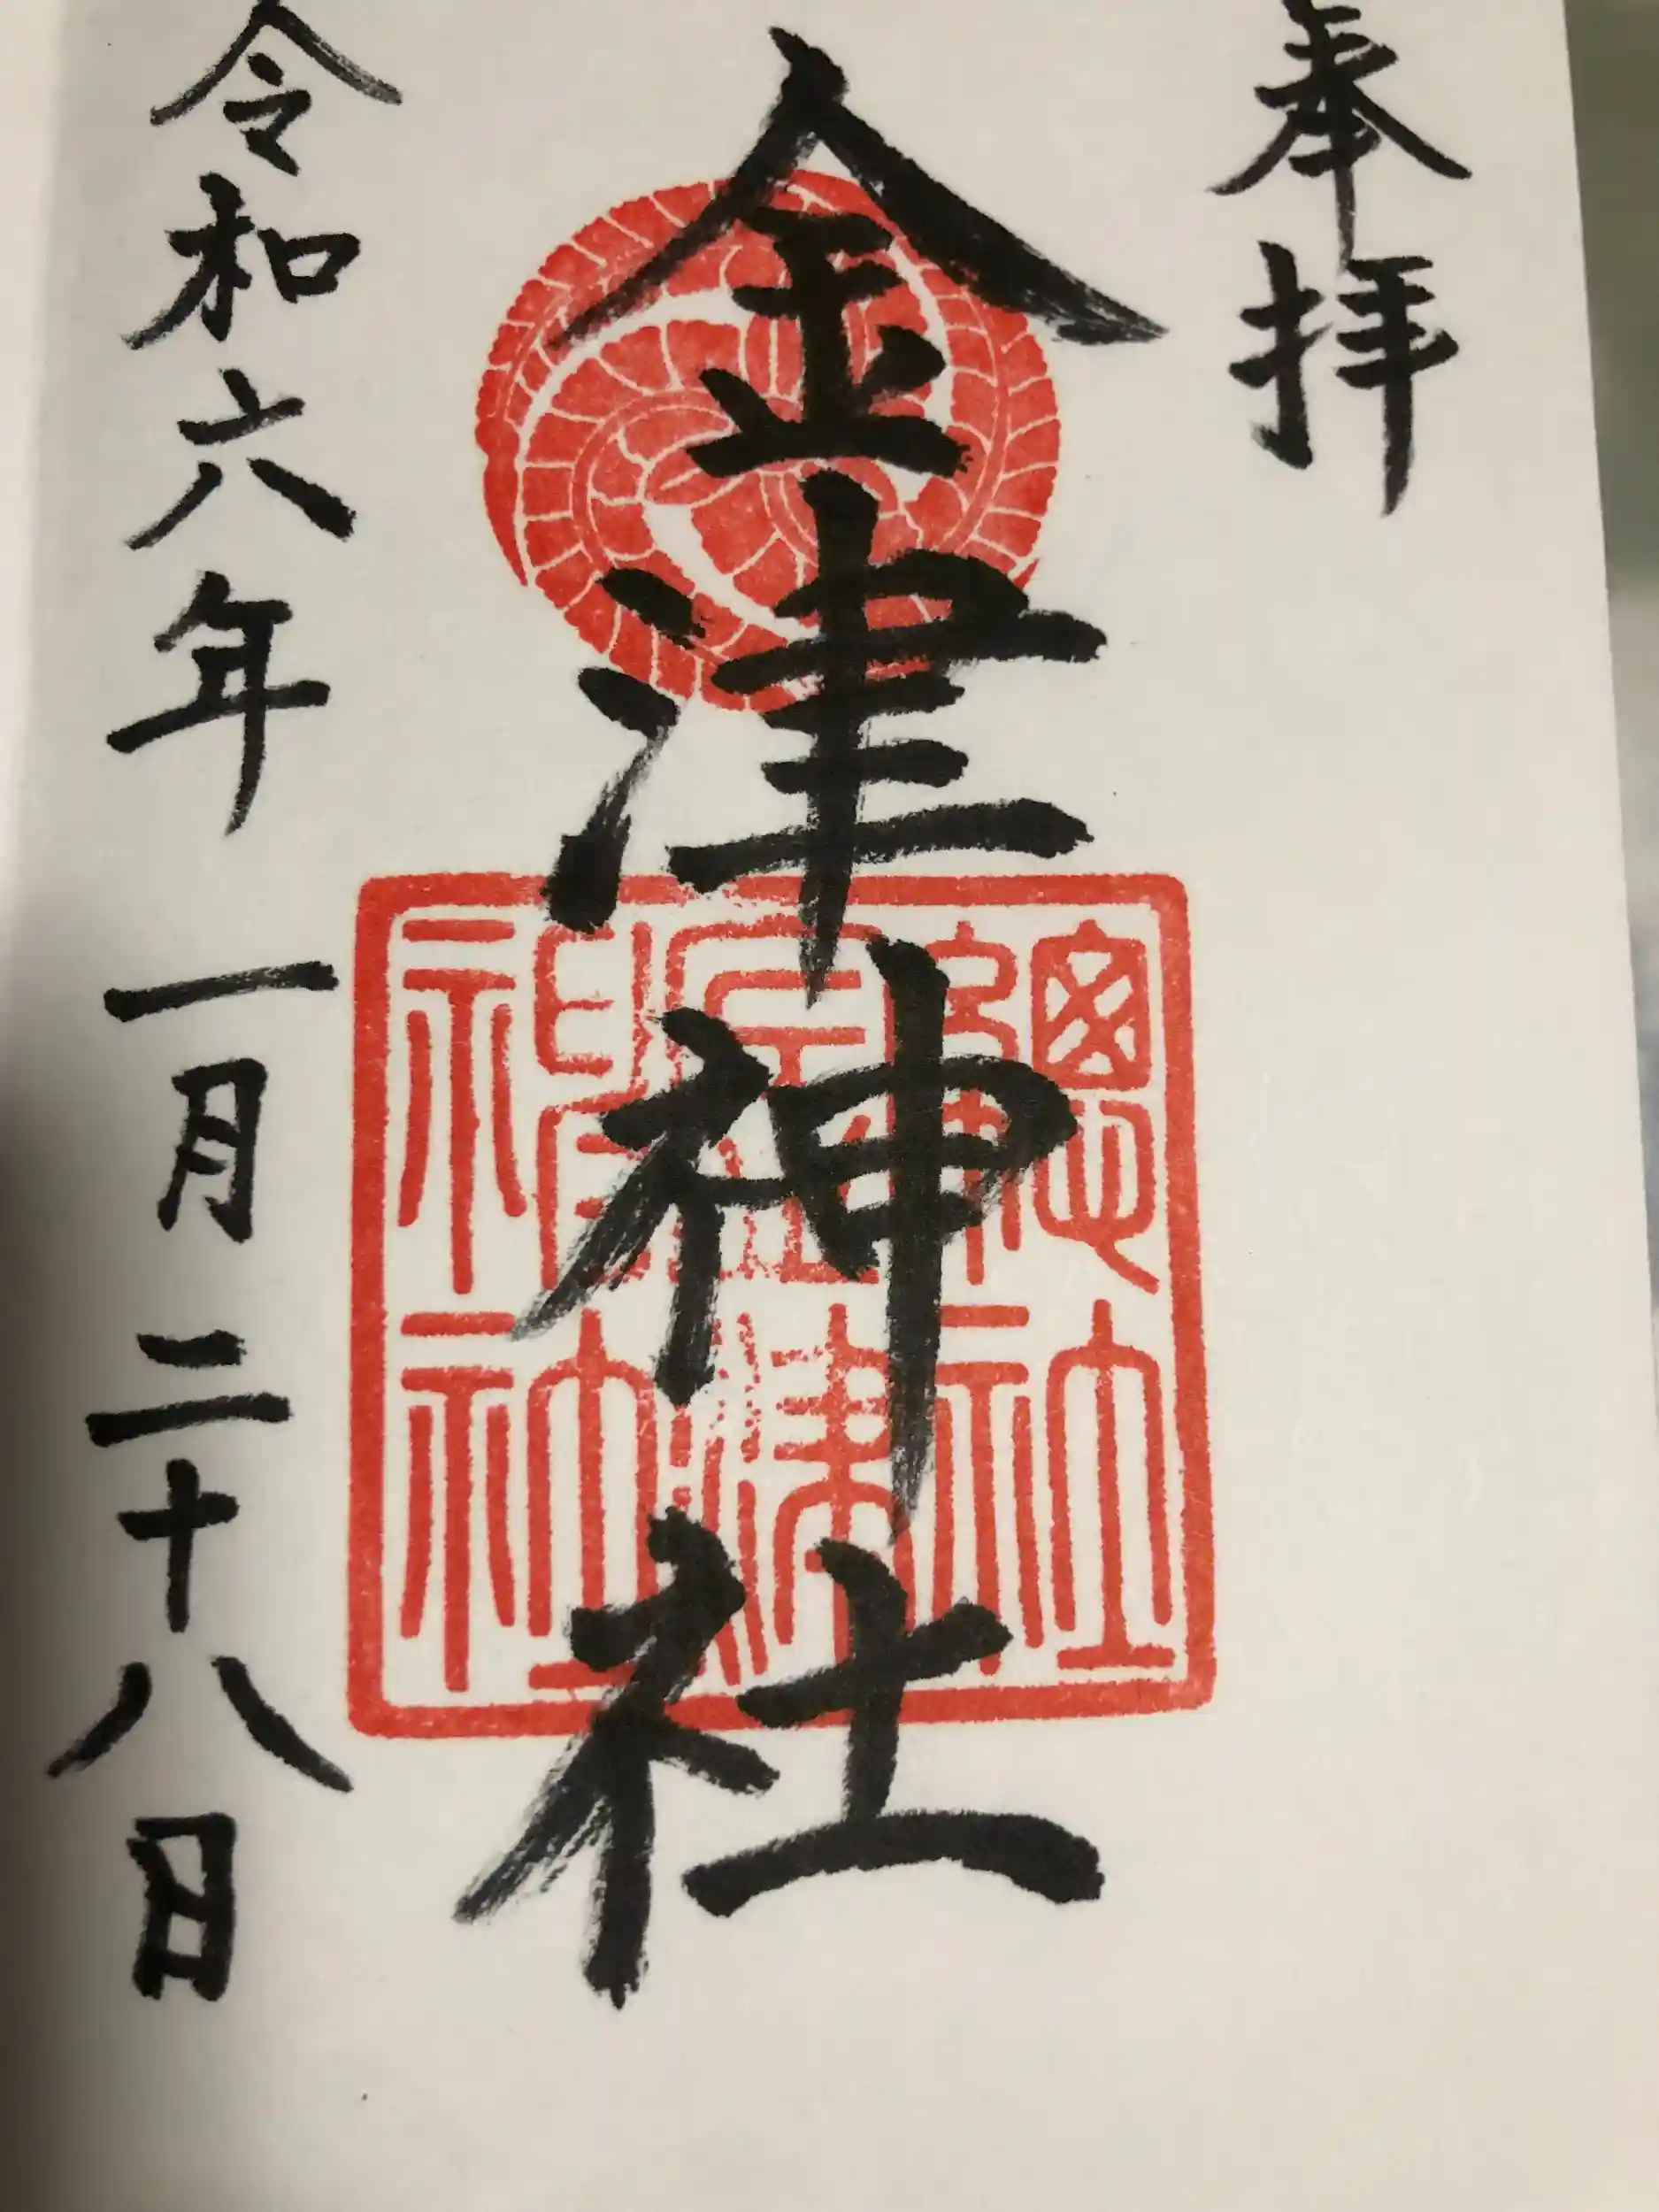 奉拝
金津神社
總社
金津
神社
令和六年一月二十八日